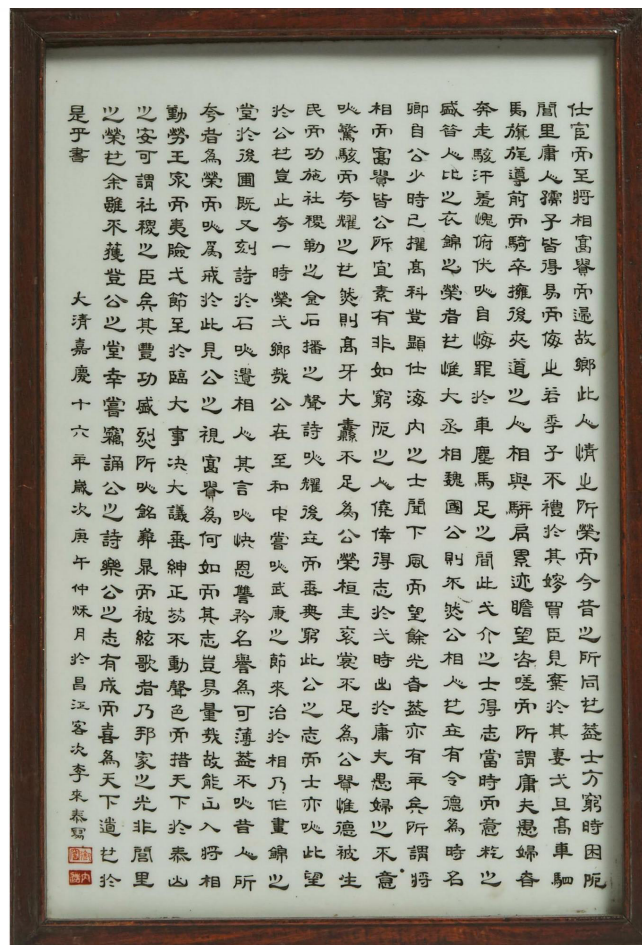 仕宦而至將相富貴而還故鄉此人情之所榮而今昔之所同也蓋士方窮時困阨
閭里庸人孺子皆得易而侮之若季子不禮於其嫂買臣見棄於其妻弌旦高車駟
馬旗旄導前而騎卒擁後夾道之人相與駢肩累迹瞻望咨嗟而所謂庸夫愚婦者
奔走駭汗羞愧俯伏以自悔罪於車塵馬足之間此弌介之士得志當時而意氣之
盛昔人比之衣錦之榮者也惟大丞相魏國公則不然公相人也世有令德為時名
卿自公少時已擢高科登顯仕海內之士聞下風而望餘光者蓋亦有年矣所謂將
相而富貴皆公所宜素有非如窮阨之人僥倖得志於弌時出於庸夫愚婦之不意
以驚駭而夸耀之也然則高牙大纛不足為公榮桓圭袞裳不足為公貴惟德被生
民而功施社稷勒之金石播之聲詩以耀後世而垂無窮此公之志而士亦以此望
於公也豈止夸一時榮弌鄉哉公在至和中嘗以武康之節來治於相乃作晝錦之
堂於後圃既又刻詩於石以遺相人其言以快恩讐矜名譽為可薄蓋不以昔人所
夸者為榮而以為戒於此見公之視富貴為何如而其志豈易量哉故能出入將相
勤勞王家而夷險弌節至於臨大事決大議垂紳正笏不動聲色而措天下於泰山
之安可謂社稷之臣矣其豐功盛烈所以銘彝鼎而被絃歌者乃邦家之光非閭里
之榮也余雖不獲登公之堂幸嘗竊誦公之詩樂公之志有成而喜為天下道也於
是乎書 大清嘉慶十六年歲次庚午仲秌月於昌江客次李來泰寫